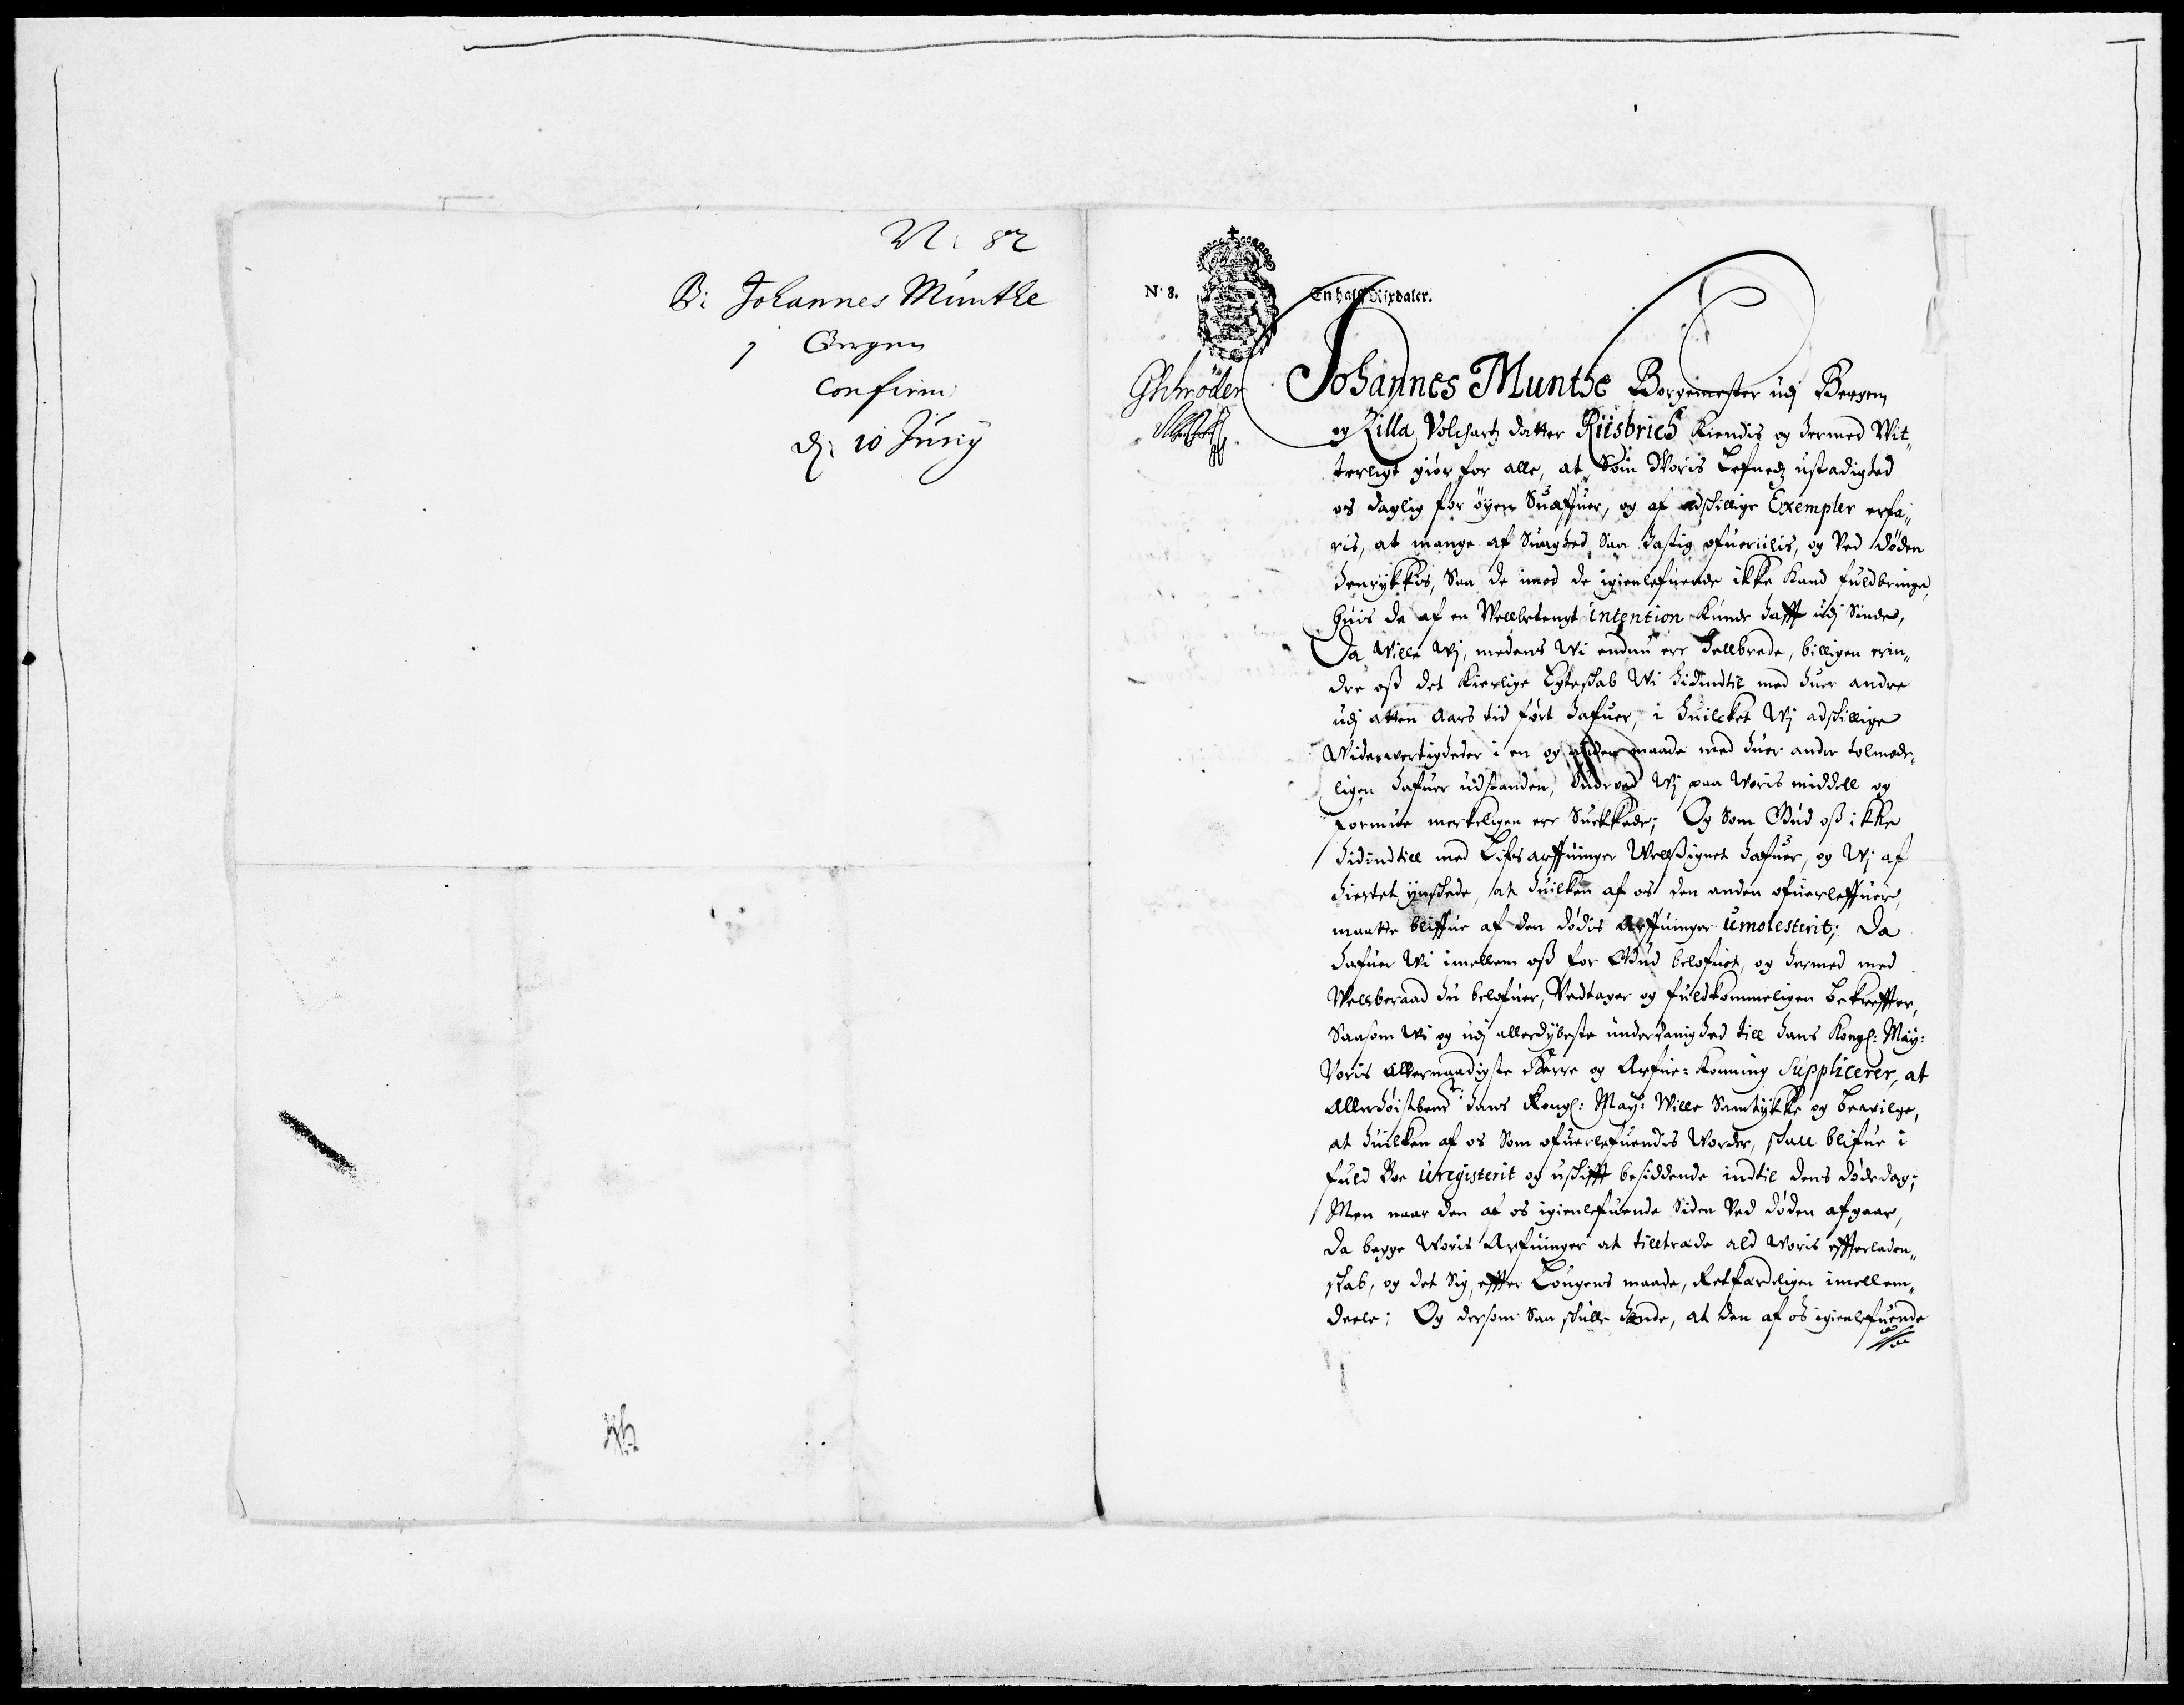 N: 82
B: Johannes Munthe
i Bergen
Confirm:
d: 10 Junij
N. 8.
En halff Rixdaler.
GSchröder
Johannes Munthe Borgemester udj Bergen
og Zilla Volchartz datter Riisbrich Kiendis og hermed Wit„
terligt giør for alle, at Som Woris Lefnedz ustadighed
os daglig for øyen Suæffuer, og af adschillige Exempler erfa„
ris, at mange af Suaghed Saa hastig ofueriilis, og Ved døden
henrykkis, Saa de imod de igienlefuende ikke Kand fuldbringe,
huis de af en Wellbetengt intention Kunde hafft udj Sinde,
Da Wille Wj, medens Wi endnu ere Hellbrede, billigen erin„
dre oss det Kierlige Egteschab Wi hidindtil med huer andre
udj atten Aars tid ført hafuer, i huilcket Wj adschillige
Widerwertigheder i en og anden maade med huer andre tolmode„
ligen hafuer udstanden, huorved Wj paa Woris middell og
formue merkeligen ere Suekkede; Og Som Gud oss ikke
hidindtill med Lifsarffuinger Wellsignet hafuer, og Wj af
hiertet ynschede, at huilken af os den anden ofuerleffuer,
maatte bliffue af den dødis Arffuinger umolesterit; Da
hafuer Wi imellem oss for Gud belofuet, og hermed med
Wellberaad hu belofuer, Vedtager og fuldkommeligen bekreffter,
Saasom Wi og udj allerdybeste underdanighed till hans Kongl: May:
Voris Allernaadigste Herre og Arfue-Konning Supplicerer, at
Allerhøistbemte: hans Kongl: May: Wille Samtykke og bevilge,
at huilken af os Som ofuerlefuendis Worder, schall blifue i
fuld Boe uregisterit og uschifft besiddende indtil dens dødedag;
Men naar den af os igienlefuende Siden Ved døden afgaar,
da begge Woris Arfuinger at tilltræde ald Woris effterladen„
skab, og det Sig, effter Lougens maade, Retfærdeligen imellem„
deele; Og dersom Saa schulle hende, at den af os igienlefuende